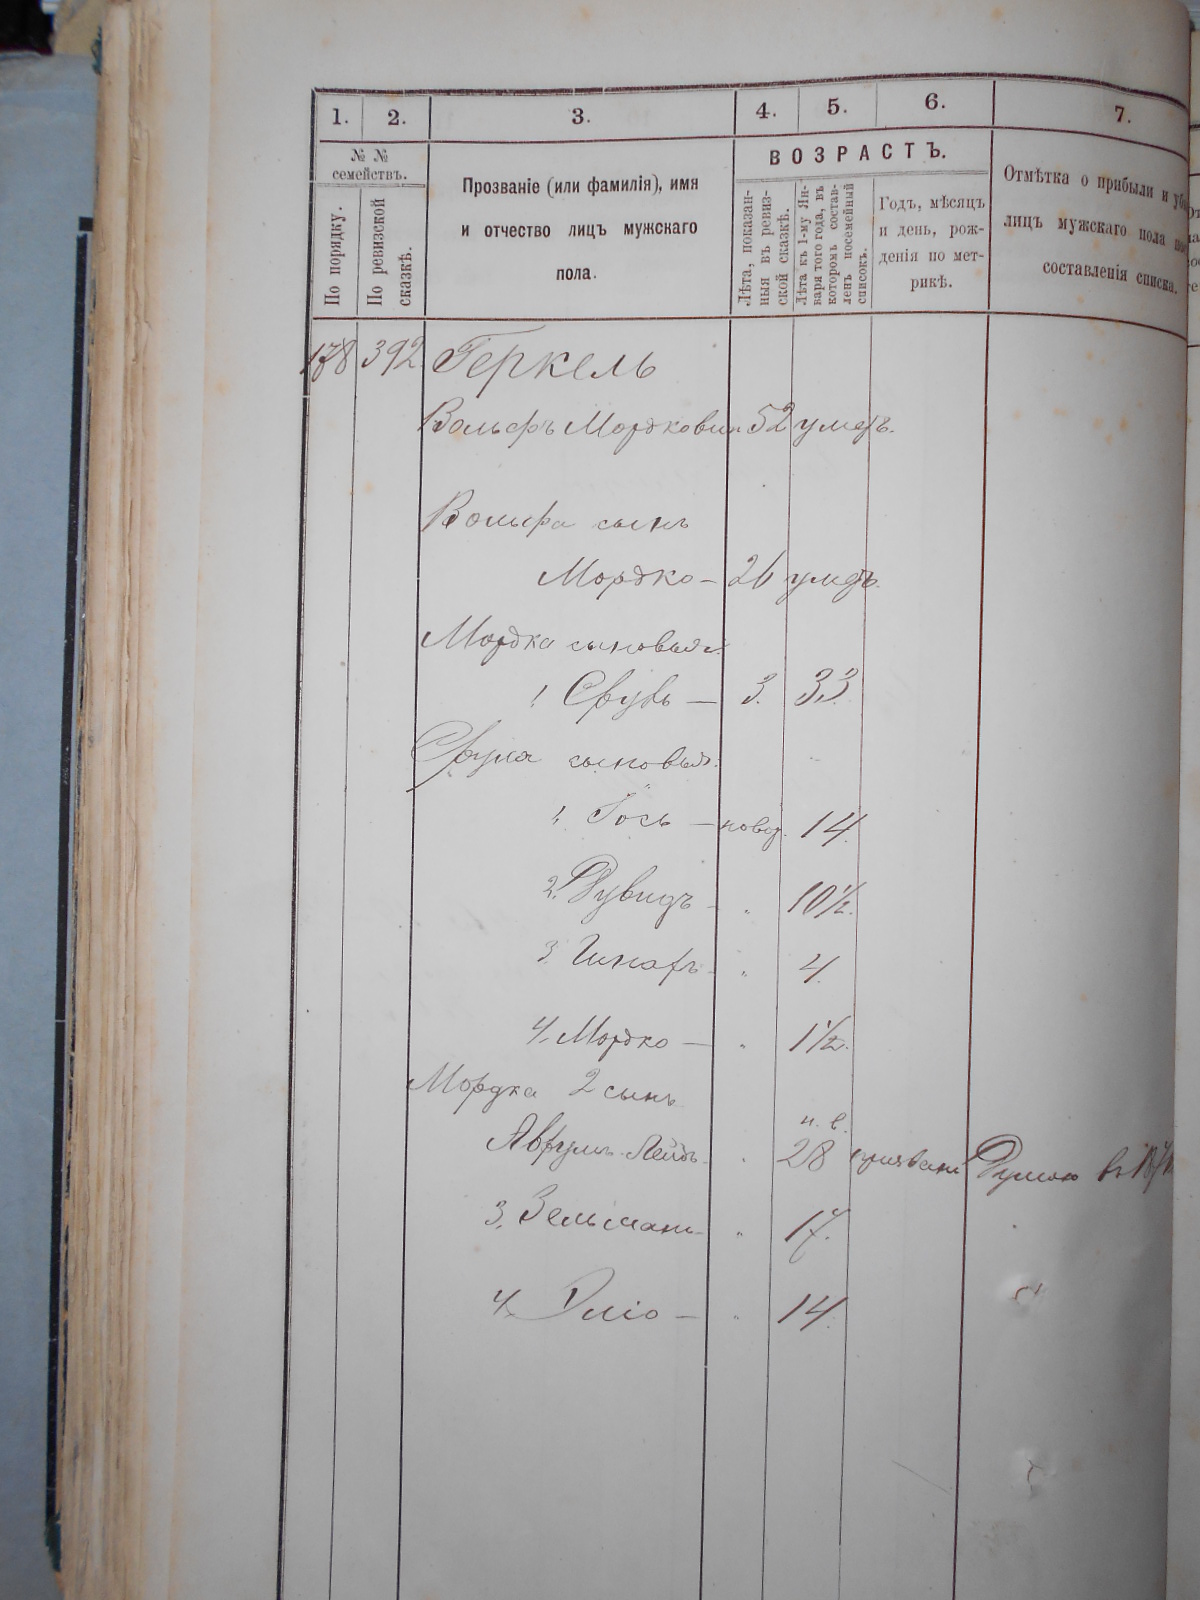 1. 2. 3. 4. 5. 6. 7.
№ № семействъ.
По порядку.
По ревизской сказкѣ.
Прозваніе (или фамилія), имя
и отчество лицъ мужскаго
пола.
ВОЗРАСТЪ.
Лѣта, показан-
ныя въ ревиз-
ской сказкѣ.
Лѣта къ 1-му Ян-
варя того года, въ
которомъ состав-
ленъ посемейный
списокъ.
Годъ, мѣсяцъ
и день, рож-
денія по мет-
рикѣ.
Отмѣтка о прибыли и
лицъ мужскаго пола
составленія списка.
178 392 Геркель
Вольфъ Мордкович 52 умеръ.
Вольфа сынъ
Мордко — 26 умеръ.
Мордка сыновья:
1. Сруль — 3. 33
Сруля сыновья:
1. Іось — новор. 14.
2. Дувидъ — " 10½.
3. — " 4.
4. Мордко — " 1½.
Мордка 2 сынъ
н. в.
Аврумъ-Лейбъ " 28 призванъ Думою въ
3. Зельманъ — " 17.
4. Элio — " 14.